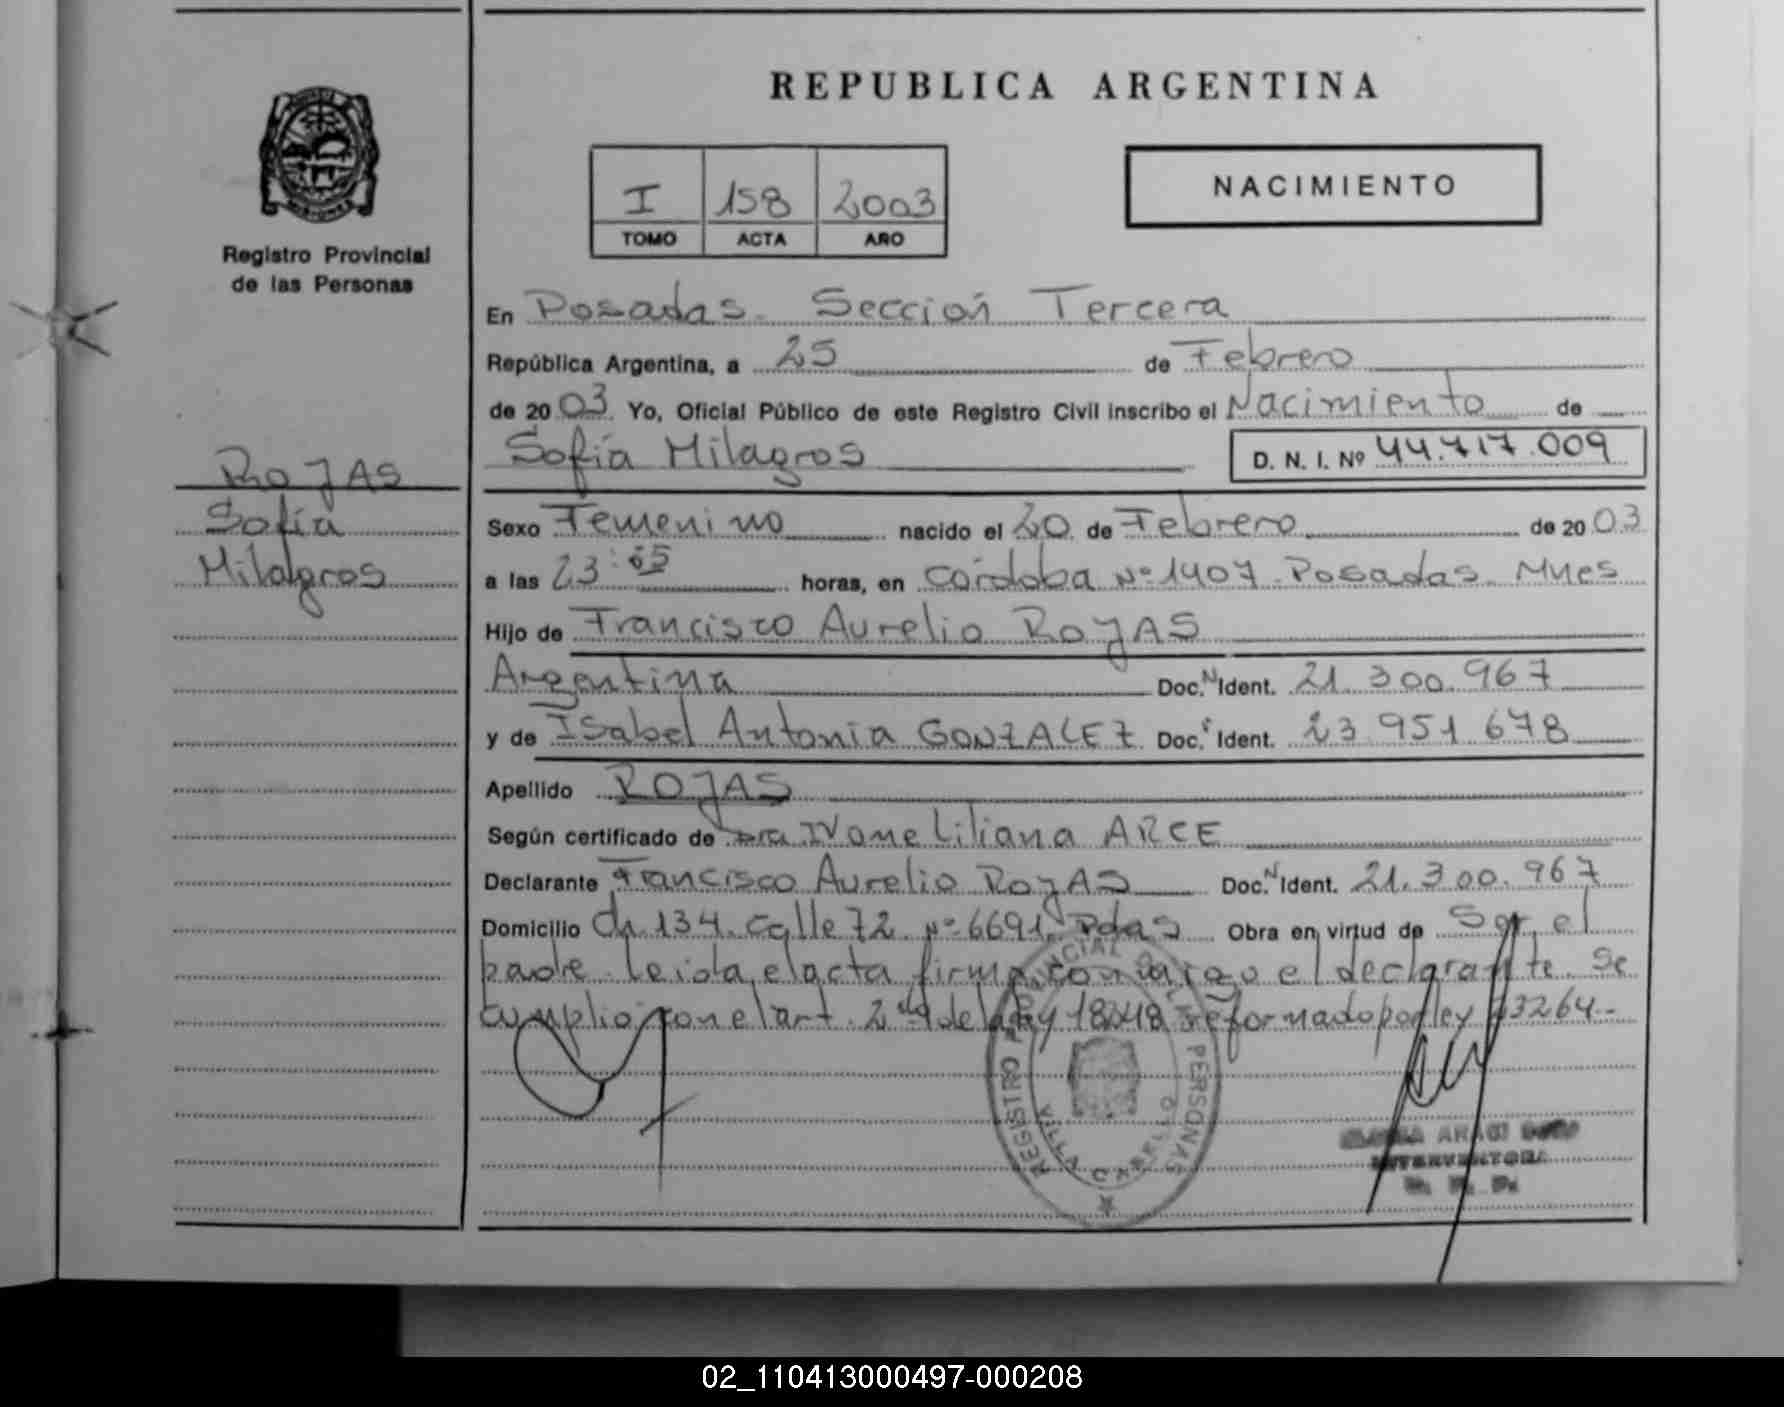 REPUBLICA ARGENTINA
I 158 2003
TOMO ACTA AÑO
NACIMIENTO
MISIONES
Registro Provincial
de las Personas
En Posadas. Sección Tercera
República Argentina, a 25 de Febrero
de 2003 Yo, Oficial Público de este Registro Civil inscribo el Nacimiento de
Sofía Milagros D. N. I. Nº 44.717.009
ROJAS
Sofía
Milagros
Sexo Femenino nacido el 20 de Febrero de 2003
a las 23:05 horas, en Córdoba Nº 1407 Posadas Mnes
Hijo de Francisco Aurelio ROJAS
Argentina Doc. N Ident. 21.300.967
y de Isabel Antonia GONZALEZ Doc. Ident. 23 951 678
Apellido ROJAS
Según certificado de Dra Ivone Liliana ARCE
Declarante Francisco Aurelio ROJAS Doc. N Ident. 21.300.967
Domicilio Ch 134. Calle 72 Nº 6691. Pdas Obra en virtud de Ser el
padre. Leida el acta firma conmigo el declarante. Se
cumplio con el art. 2do de la ley 18248 reformado por ley 23264.-
REGISTRO PROVINCIAL DE LAS PERSONAS
VILLA CABELLO
INTERVENTORA
02_110413000497-000208